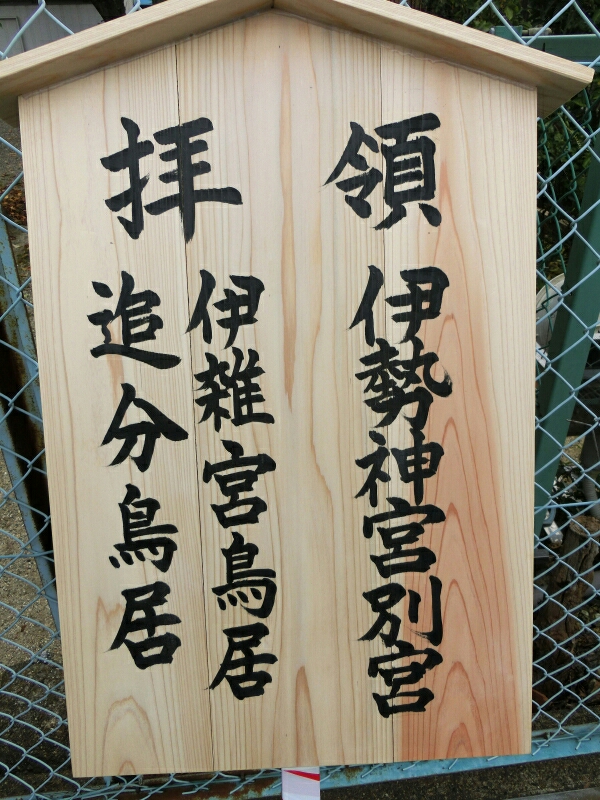 拝領
伊勢神宮別宮
伊雑宮鳥居
追分鳥居